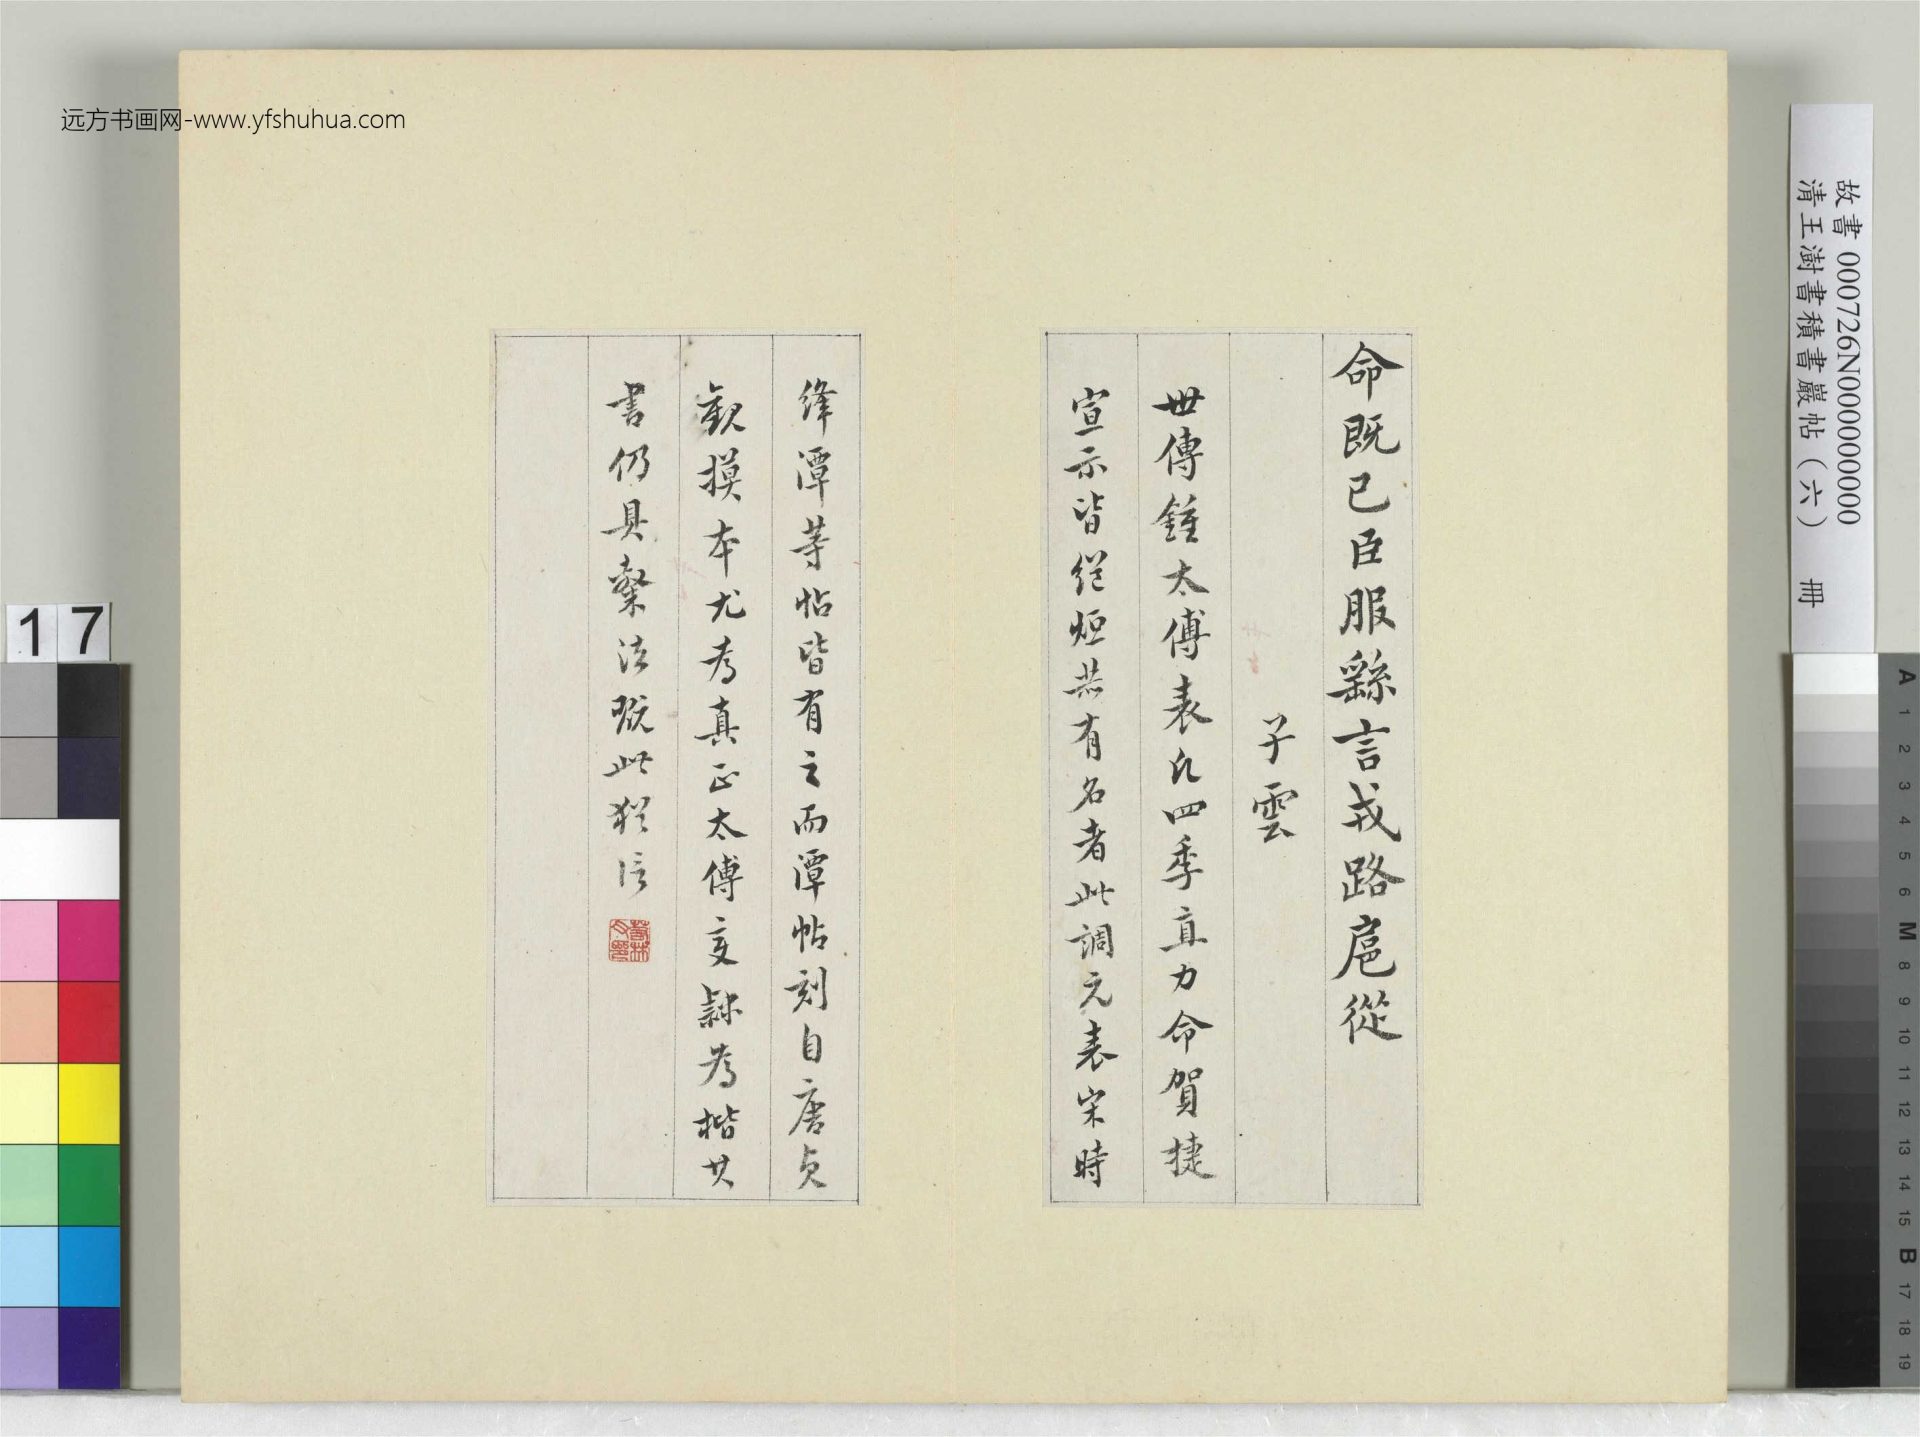 远方书画网-www.yfshuhua.com
命既已臣服繇言戎路扈從
子雲
世傳鍾太傅表凡四季直力命賀捷
宣示皆絕烜赫有名者此調元表宋時
絳潭等帖皆有之而潭帖刻自唐貞
觀摸本尤為真正太傅變隸為楷其
書仍具篆法既此猶信
故書 000726N000000000
清王澍書積書巖帖（六） 冊
17
A 1 2 3 4 5 6 M 8 9 10 11 12 13 14 15 B 17 18 19